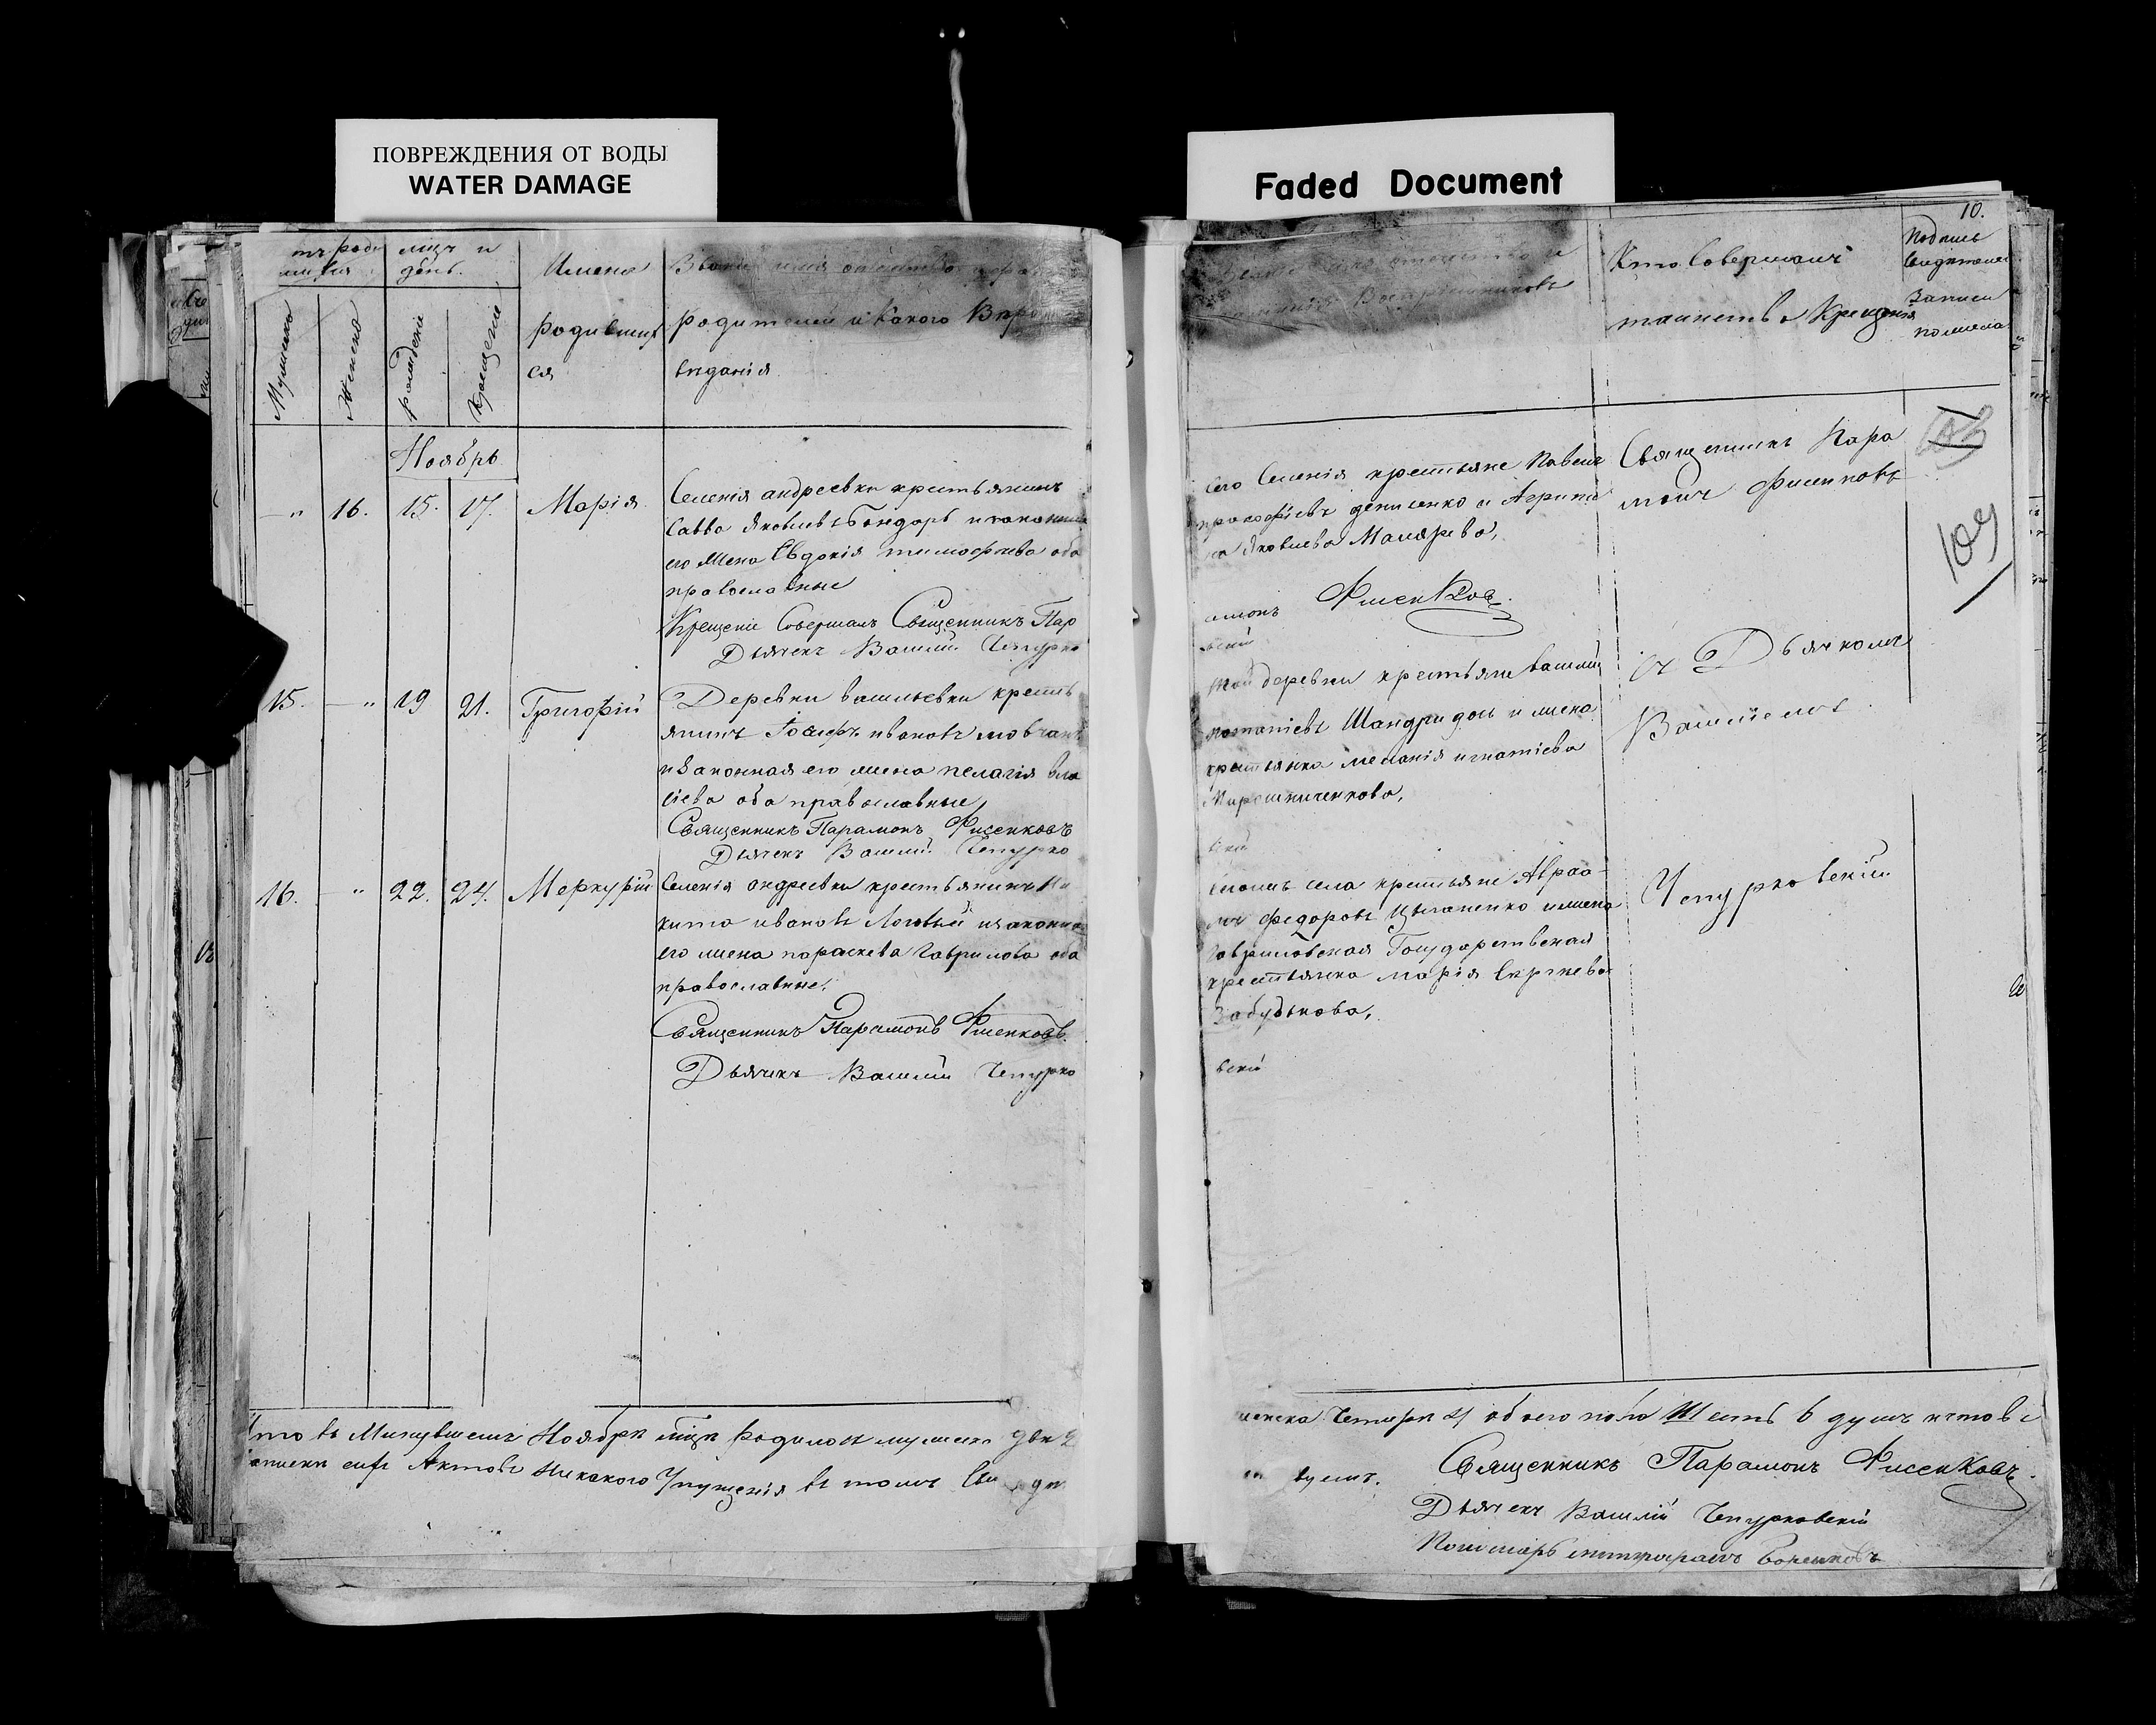 ПОВРЕЖДЕНИЯ ОТ ВОДЫ
WATER DAMAGE
Faded Document
мѣц и
день.
Мужеска
Женска
рожденіе
Крещеніе
Имена
родивших
ся
Званіе имя отчество
родителей и какого
вѣданія
Ноябрь
16. 15. 17. Марія
Селенія андреевки крестьянинъ
Савва Яковлевъ Бондарь и законная
его жена Евдокія тимофеева оба
православные
Крещеніе Совершалъ Священникъ Пар
Дьячекъ Василій Чепурко
15. 19 21. Григорій
Деревни васильевки кресть
янинъ Іосифъ ивановъ мовчанъ
и законная его жена пелагія вла
сіева оба православные,
Священникъ Парамонъ Фисенковъ
Дьячекъ Василій Чепурко
16. 22. 24. Меркурій
Селенія андреевки крестьянинъ Ни
кита ивановъ Логовый и законная
его жена параскева гаврилова оба
православные.
Священникъ Парамонъ Фисенковъ.
Дьячекъ Василій Чепурко
что въ Минувшемъ Ноябрѣ мѣцѣ родилось мужеска двѣ 2
записки сихъ Актовъ никакого Упущенія въ томъ
10.
Воспріемниковъ
Кто Совершалъ
таинство Крещенія
Подпись
Записи
сего Селенія крестьяне Павелъ
прокофіевъ денисенко и Агрипи
на Яковлева Малярева,
амонъ Фисенковъ.
вскій
Священникъ Пара
монъ Фисенковъ
109
той деревни крестьяне василій
игнатіевъ Шандридонъ и жена
крестьянка меланія игнатіева
Мирошниченкова,
вскій
съ Дьячкомъ
Василіемъ
села крестьяне Авраа-
мъ федоровъ Цыганенко и жена
гавриловская Государственная
крестьянка марія Сергѣева
Забудькова,
вскій
Чепурковскій
женска Четыре 4 обоего пола Шесть 6 душъ и что въ
Священникъ Парамонъ Фисенковъ.
Дьячекъ Василій Чепурковскій